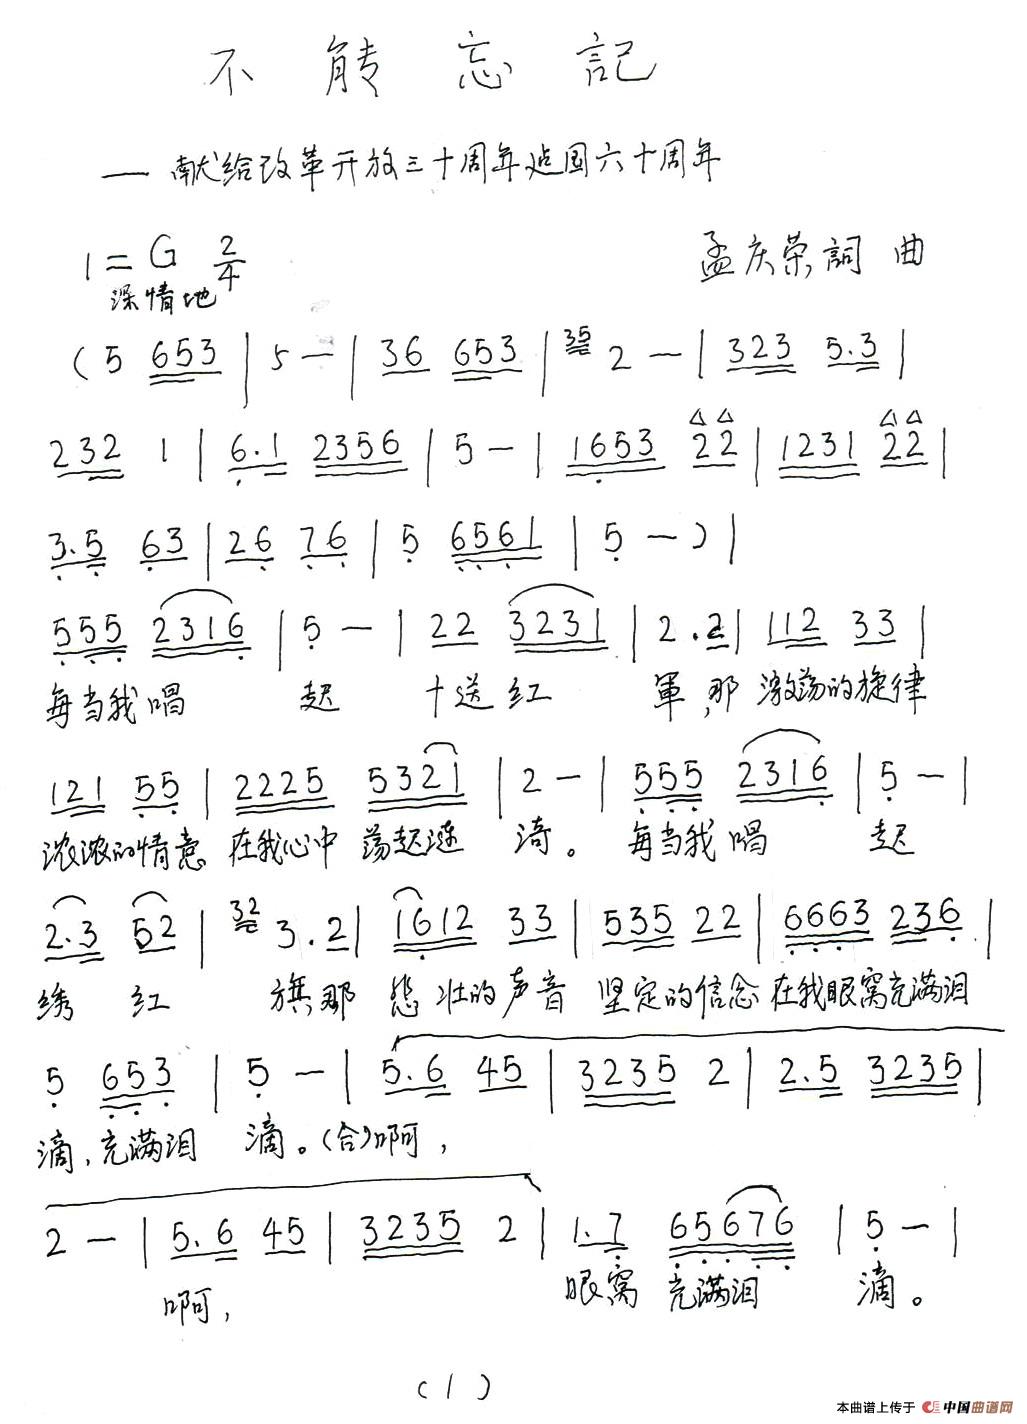 不能忘記
— 献给改革开放三十周年建国六十周年
1=G 2/4
孟庆荣詞曲
深情地
(5 653 | 5 — | 36 653 | 35 2 — | 323 5.3 |
232 1 | 6.1 2356 | 5 — | 1653 22 | 1231 22 |
3.5 63 | 26 76 | 5 6561 | 5 —) |
555 2316 | 5 — | 22 3231 | 2.2 | 112 33 |
每当我唱 起 十送红 軍,那 激荡的旋律
121 55 | 2225 5321 | 2 — | 555 2316 | 5 — |
浓浓的情意 在我心中 荡起涟 漪。 每当我唱 起
2.3 52 | 32 3.2 | 1612 33 | 535 22 | 6663 236 |
绣 红 旗那 悲壮的声音 坚定的信念 在我眼窝充满泪
5 653 | 5 — | 5.6 45 | 3235 2 | 2.5 3235 |
滴,充满泪 滴。(合)啊,
2 — | 5.6 45 | 3235 2 | 1.7 65676 | 5 — |
啊, 眼窝 充满泪 滴。
(1)
本曲谱上传于 中国曲谱网